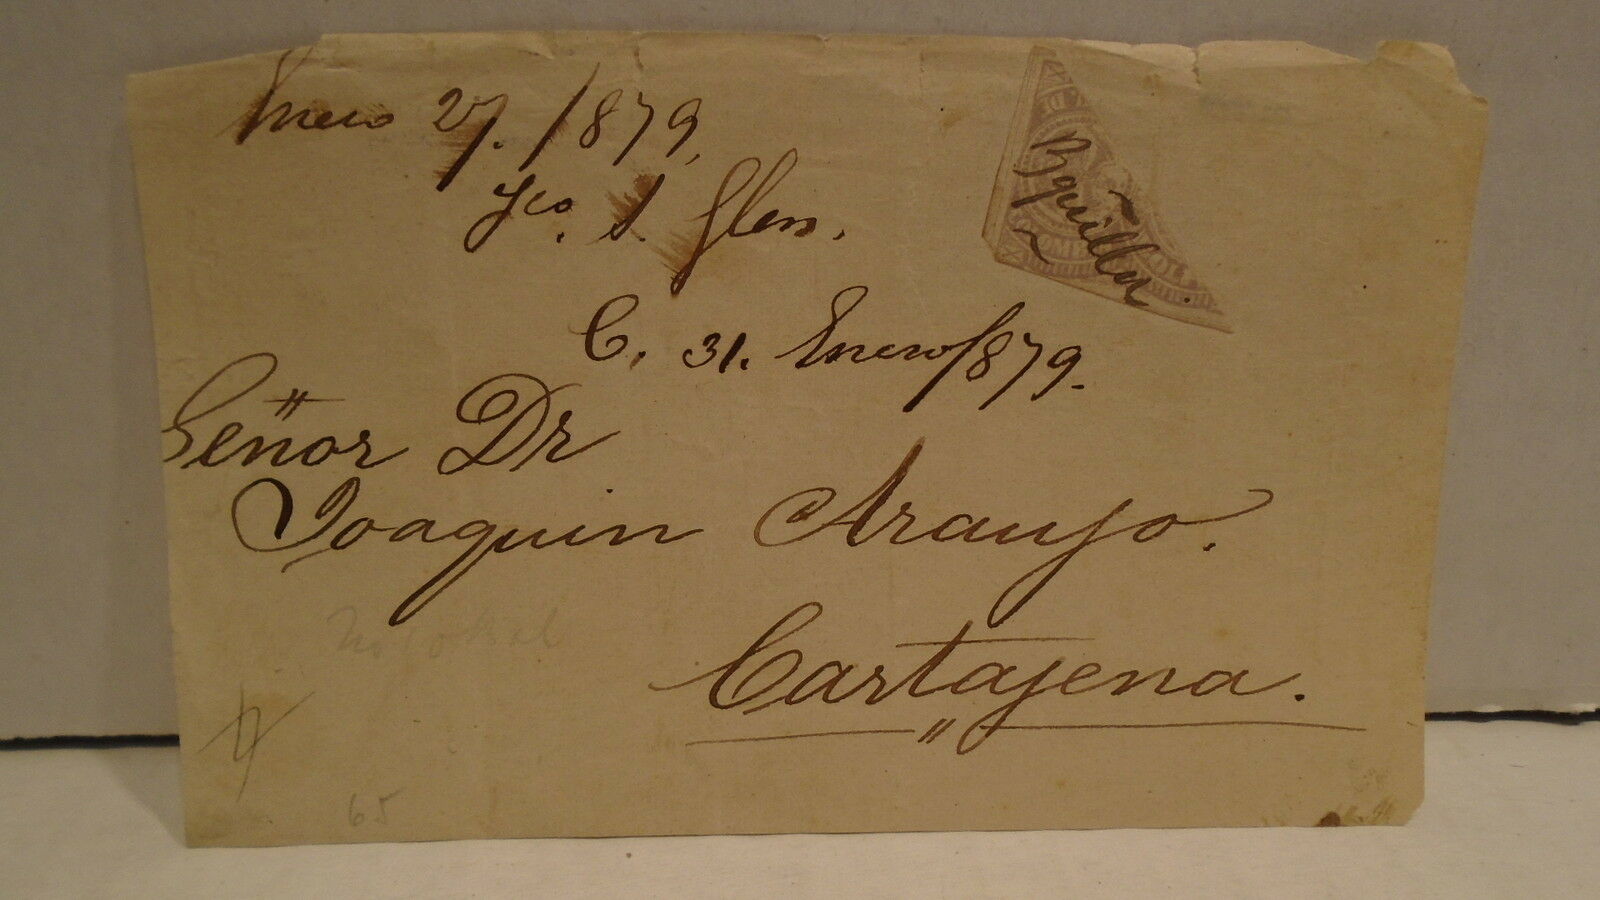 Enero 27. /1879,
Jco. S. Glen.
Bquilla
C. 31. Enero/1879.
Señor Dr
Joaquin Araujo.
Cartajena.
65